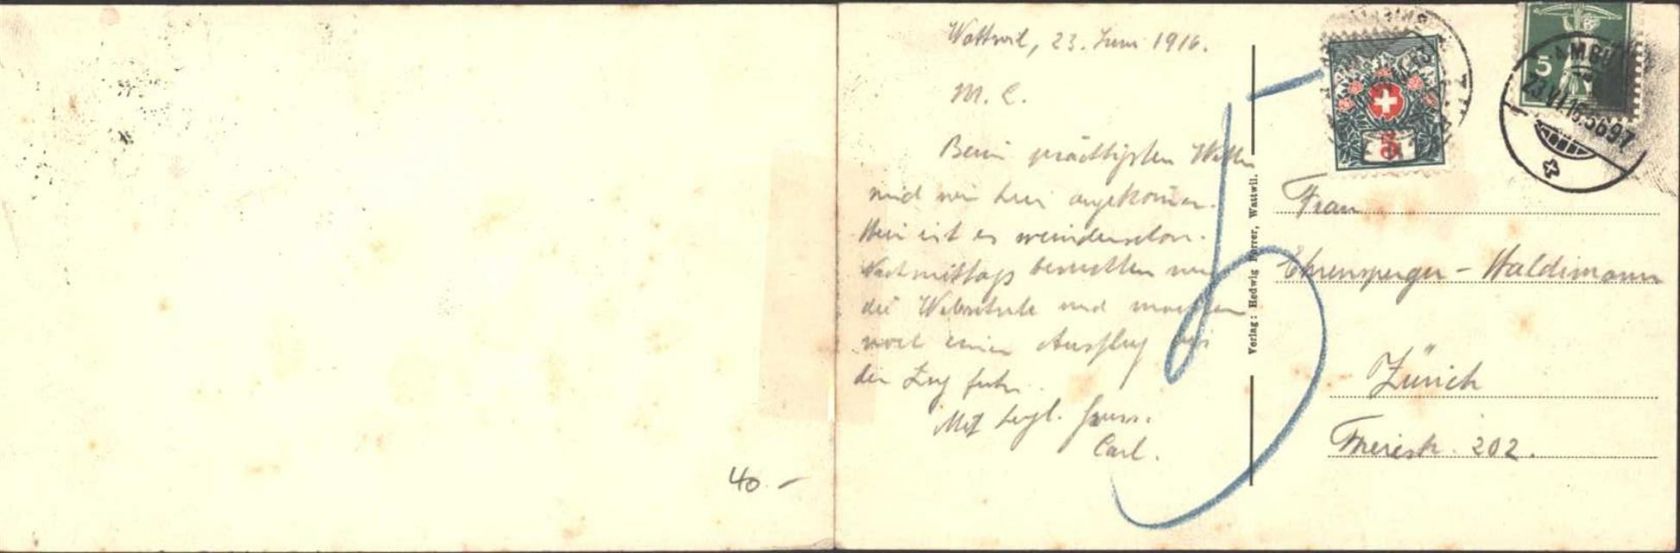 Wattwil, 23. Juni 1916.
M. L.
Beim prächtigsten Wetter
sind wir hier angekommen.
Hier ist es wunderschön.
Nachmittags besuchten wir
die Webschule und machten
noch einen Ausflug bis
der Zug fuhr.
Mit herzl. Gruss.
Carl.
40.-
Verlag: Hedwig Forrer, Wattwil.
5
5
23.VI.16
Frau
Ehrensperger - Waldimann
Zürich
202.